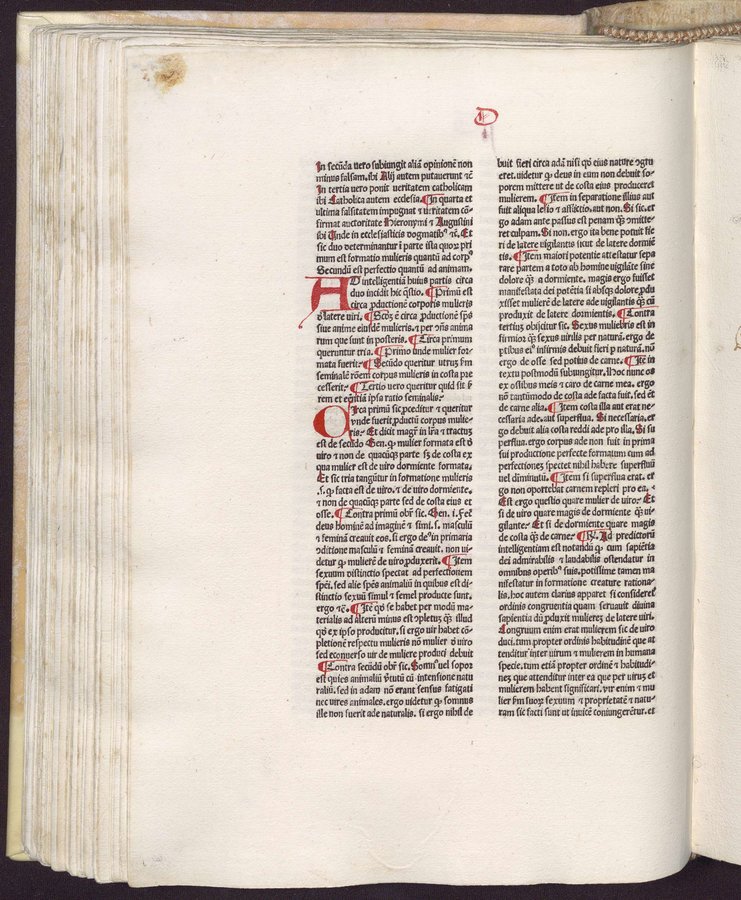 D
In secūda vero subiungit aliā opinionē non
minus falsam. ibi Alij autem putauerunt ⁊c̄
In tertia vero ponit veritatem catholicam
ibi Catholica autem ecclesia. ¶ In quarta et
ultima falsitatem impugnat ⁊ ueritatem cō⸗
firmat auctoritate Hieronymi ⁊ Augustini
ibi Unde in ecclesiasticis dogmatibꝰ ⁊c̄. Et
sic duo determinantur ī parte ista quoꝝ pri
mum est formatio mulieris quantū ad corpꝰ
Secundū est perfectio quantū ad animam.
AD intelligentiā huius partis circa
duo incidit hic q̄stio. ¶ Primū est
circa ꝓductionē corporis mulieris
ꝺ latere viri. ¶ Scd̄ꝫ ē circa ꝓductionē spūs
siue anime eiusdē mulieris. ⁊ per ꝯn̄s anima
rum que sunt in posteris. ¶ Circa primum
queruntur tria. ¶ Primo unde mulier for⸗
mata fuerit. ¶ Secūdo queritur utrūꝫ fm̄
seminalē rōem corpus mulieris in costa pre
cesserit. ¶ Tertio vero queritur quid sit ī
rem et eēntiā ipsa ratio seminalis.
Circa primū sic ꝓceditur ⁊ queritur
vnde fuerit ꝓductū corpus mulie⸗
ris. Et dicit magr̄ in l̄ra ⁊ tractus
est de secūdo Gen. ꝙ mulier formata est ꝺ
uiro ⁊ non de quacūqꝫ parte sꝫ de costa ex
qua mulier est de uiro dormiente formata.
Et sic tria tangūtur in formatione mulieris
.s. ꝙ facta est de uiro. ⁊ de viro dormiente.
⁊ non de quacūqꝫ parte sed de costa eius et
osse. ¶ Contra primū obr̄ sic. Gen. i. Fec̄
deus hominē ad imaginē ⁊ simi. s. masculū
⁊ feminā creauit eos. si ergo deꝰ in primaria
ꝯditione masculū ⁊ feminā creauit. non vi⸗
detur ꝙ mulierē de uiro ꝓduxerit. ¶ Item
sexuum distinctio spectat ad perfectionem
spēi. sed alie spēs animaliū in quibus est di⸗
stinctio sexuū simul ⁊ semel producte sunt.
ergo ⁊c̄. ¶ Itē qd̄ se habet per modū ma⸗
terialis ad alterū minus est ꝯpletuꝫ illud
qd̄ ex ipso producitur. si ergo vir habet cō⸗
pletionē respectu mulieris nō mulier ꝺ uiro
sed econuerso vir de muliere produci debuit
¶ Contra secūdū obr̄ sic. Somnꝰ uel sopor
est quies animaliū ṽtutū cū intensione natu
raliū. sed in adam nō erant sensus fatigati
nec vires animales. ergo uidetur ꝙ somnus
ille non fuerit ade naturalis. si ergo nihil de
buit fieri circa adā nisi qd̄ eius nature ꝯgru
eret. uidetur ꝙ deus in eum non debuit so⸗
porem mittere ut de costa eius produceret
mulierem. ¶ Item in separatione illius aut
fuit aliqua lesio ⁊ afflictio. aut non. Si sic. er
go adam ante passus est penam qꝫ ꝯmitte⸗
ret culpam. Si non. ergo ita bene potuit fie
ri de latere vigilantis sicut de latere dormiē
tis. ¶ Item maiori potentie attestatur sepa
rare partem a toto ab homine vigilāte sine
dolore qꝫ a dormiente. magis ergo fuisset
manifestata dei potētia si absqꝫ dolore ꝓdu
xisset mulierē de latere ade vigilantis qꝫ cū
produxit de latere dormientis. ¶ Contra
tertiuꝫ obijcitur sic. Sexus muliebris est in
firmior qꝫ sexus virilis per naturā. ergo de
ptibus eiꝰ infirmis debuit fieri p̄ naturā. nō
ergo de osse sed potius de carne. ¶ Itē in
textu postmodū subiungitur. Hoc nunc os
ex ossibus meis ⁊ caro de carne mea. ergo
nō tantūmodo de costa ade facta fuit. sed et̄
de carne alia. ¶ Item costa illa aut erat ne⸗
cessaria ade. aut superflua. Si necessaria. er
go debuit alia costa reddi ade pro illa. Si su
perflua. ergo corpus ade non fuit in prima
sui productione perfecte formatum cum ad
perfectioneꝫ spectet nihil habere superfluū
uel diminutū. ¶ Item si superflua erat. er
go non oportebat carnem repleri pro ea. ⁊
Est ergo questio quare mulier de uiro. Et
si de viro quare magis de dormiente qꝫ vi⸗
gilante. Et si de dormiente quare magis
de costa qꝫ de carne. ¶ Rꝰ. Ad predictorū
intelligentiam est notandū ꝙ cum sapiētia
dei admirabilis ⁊ laudabilis ostendatur in
omnibus operibꝰ suis. potissime tamen ma
nifestatur in formatione creature rationa⸗
lis. hoc autem clarius apparet si consideret̄
ordinis congruentia quam seruauit diuina
sapientia dū ꝓduxit mulierē de latere viri.
Congruum enim erat mulierem sic de uiro
duci. tum propter ordinis habitudinē que at
tenditur inter uirum ⁊ mulierem in humana
specie. tum etiā propter ordinē ⁊ habitudi⸗
neꝫ que attenditur inter ea que per uiruꝫ et
mulierem habent significari. vir enim ⁊ mu
lier fm̄ suoꝝ sexuum ⁊ proprietatē ⁊ natu⸗
ram sic facti sunt ut inuicē coniungerētur. et